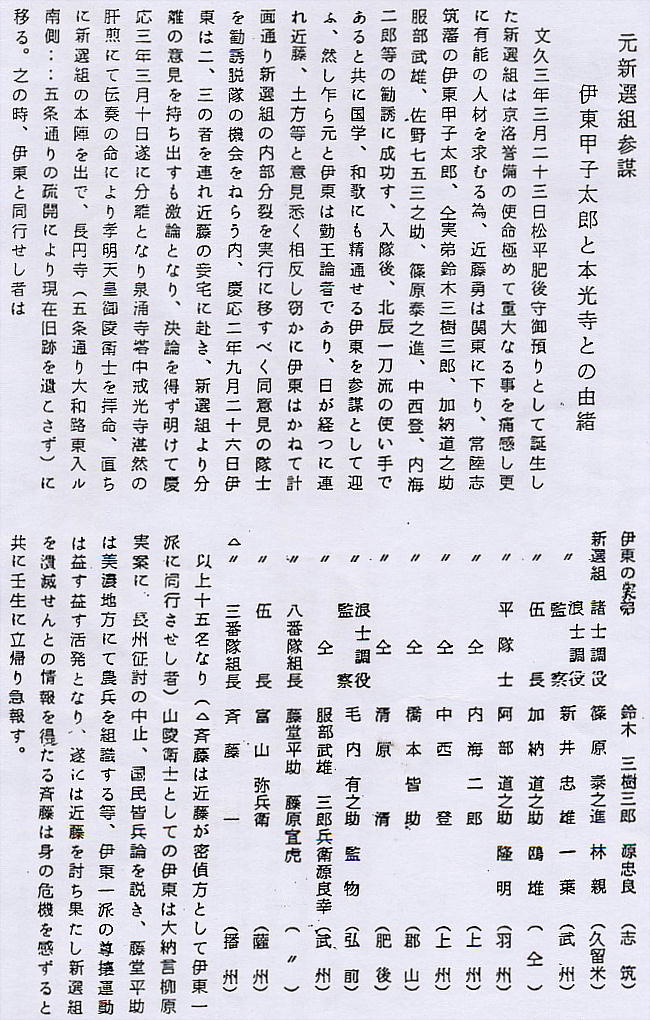 元新選組参謀
伊東甲子太郎と本光寺との由緒
文久三年三月二十三日松平肥後守御預りとして誕生し
た新選組は京洛誉備の使命極めて重大なる事を痛感し更
に有能の人材を求むる為、近藤勇は関東に下り、常陸志
筑藩の伊東甲子太郎、仝実弟鈴木三樹三郎、加納道之助
服部武雄、佐野七五三之助、篠原泰之進、中西登、内海
二郎等の勧誘に成功す、入隊後、北辰一刀流の使い手で
あると共に国学、和歌にも精通せる伊東を参謀として迎
ふ、然し乍ら元と伊東は勤王論者であり、日が経つに連
れ近藤、土方等と意見悉く相反し窃かに伊東はかねて計
画通り新選組の内部分裂を実行に移すべく同意見の隊士
を勧誘脱隊の機会をねらう内、慶応二年九月二十六日伊
東は二、三の者を連れ近藤の妾宅に赴き、新選組より分
離の意見を持ち出すも激論となり、決論を得ず明けて慶
応三年三月十日遂に分離となり泉涌寺塔中戒光寺湛然の
肝煎にて伝奏の命により孝明天皇御陵衛士を拝命、直ち
に新選組の本陣を出で、長円寺（五条通り大和路東入ル
南側：：五条通りの疏開により現在旧跡を遺こさず）に
移る。之の時、伊東と同行せし者は
伊東の実弟 鈴木 三樹三郎 源忠良（志筑）
新選組 諸士調役 篠原 泰之進 林親（久留米）
〃 浪士調役監察 新井忠雄 一葉（武州）
〃 伍長 加納 道之助 鴎雄（仝）
〃 平隊士 阿部 道之助 隆明（羽州）
〃 仝 内海二郎（上州）
〃 仝 中西登（上州）
〃 仝 橋本皆助（郡山）
〃 仝 清原清（肥後）
〃 浪士調役監察 毛内有之助 監物（弘前）
〃 仝 服部武雄 三郎兵衛源良幸（武州）
〃 八番隊組長 藤堂平助 藤原宜虎（〃）
〃 伍長 富山弥兵衛（薩州）
△〃 三番隊組長 斉藤一（播州）
以上十五名なり（△斉藤は近藤が密偵方として伊東一
派に同行させし者）山陵衛士としての伊東は大納言柳原
実案に、長州征討の中止、国民皆兵論を説き、藤堂平助
は美濃地方にて農兵を組識する等、伊東一派の尊攘運動
は益す益す活発となり、遂には近藤を討ち果たし新選組
を潰滅せんとの情報を得たる斉藤は身の危機を感ずると
共に壬生に立帰り急報す。